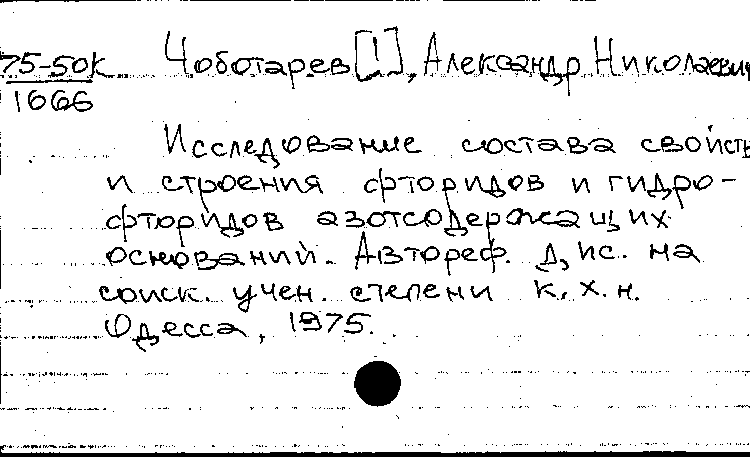 75-50К Чоботарев [!], Александр Николаевич
1666
Исследование состава свойств
и строения фторидов и гидро-
фторидов азотсодержащих
оснований. Автореф. дис. на
соиск. учен. степени к.х.н.
Одесса, 1975.